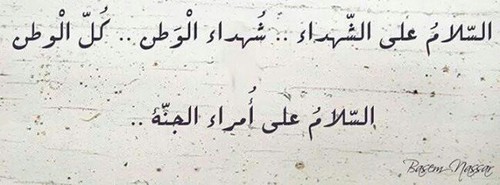 السّلامُ على الشّهداء .. شُهداء الْوَطن .. كُلّ الْوطن
السّلامُ على أُمراء الجنّة ..
Basem Nassar